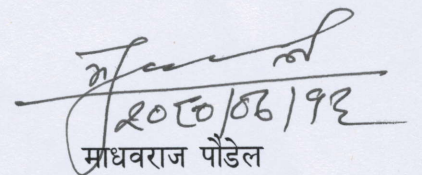 २०८०/०८/१६
माधवराज पौडेल